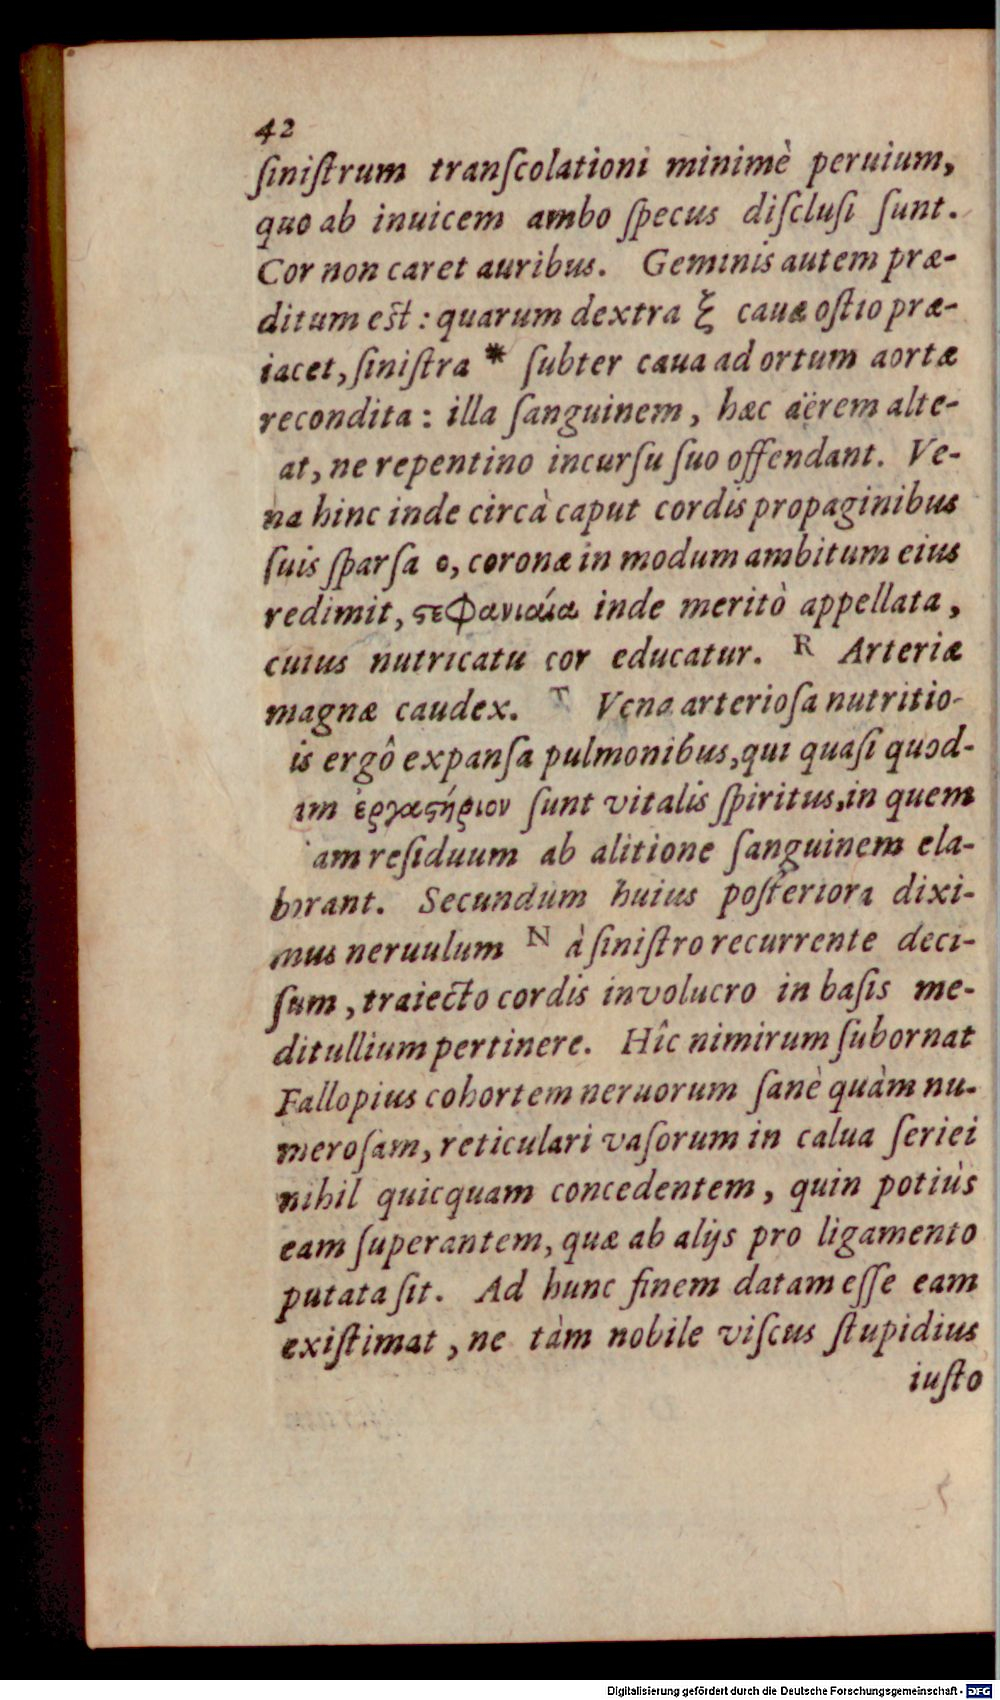 42
ſiniſtrum tranſcolationi minimè peruium,
quo ab inuicem ambo ſpecus diſcluſi ſunt.
Cor non caret auribus. Geminis autem præ-
ditum est : quarum dextra ξ cauæ oſtio præ-
iacet, ſiniſtra * ſubter caua ad ortum aortæ
recondita : illa ſanguinem, hæc aërem alte-
at, ne repentino incurſu ſuo offendant. Ve-
na hinc inde circà caput cordis propaginibus
ſuis ſparſa o, coronæ in modum ambitum eius
redimit, ϛεφανιαία inde meritò appellata,
cuius nutricatu cor educatur. R Arteriæ
magnæ caudex. T Vena arterioſa nutritio-
is ergô expanſa pulmonibus, qui quaſi quod-
am ἐργαϛήριον ſunt vitalis ſpiritus, in quem
am reſiduum ab alitione ſanguinem ela-
borant. Secundum huius poſteriora dixi-
mus neruulum N à ſiniſtro recurrente deci-
ſum, traiecto cordis involucro in baſis me-
ditullium pertinere. Hîc nimirum ſubornat
Fallopius cohortem neruorum ſanè quàm nu-
meroſam, reticulari vaſorum in calua ſeriei
nihil quicquam concedentem, quin potiùs
eam ſuperantem, quæ ab alijs pro ligamento
putata ſit. Ad hunc finem datam eſſe eam
exiſtimat, ne tàm nobile viſcus ſtupidius
iuſto
Digitalisierung gefördert durch die Deutsche Forschungsgemeinschaft - DFG